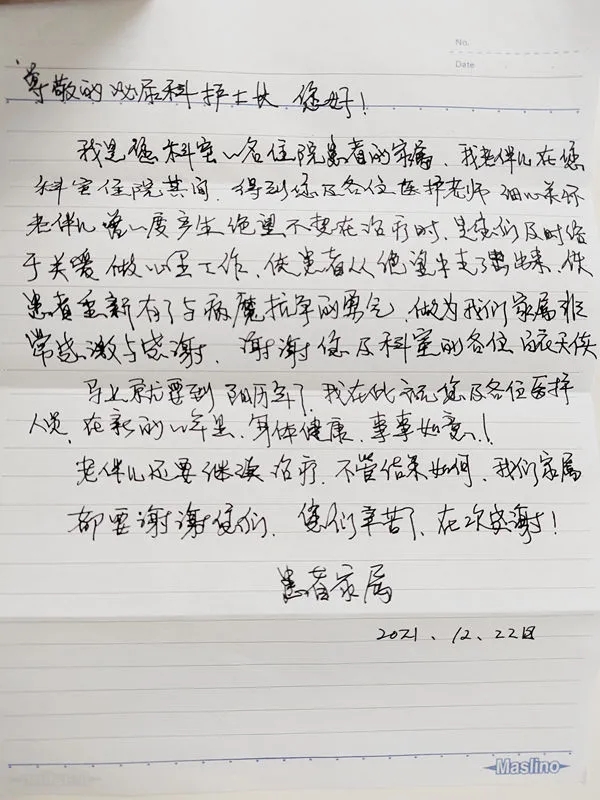 No.
Date
尊敬的泌尿科护士长 您好！
我是您科室一名住院患者的家属，我老伴儿在您
科室住院其间，得到您及各位医护老师细心关怀
老伴儿曾一度产生绝望不想在治疗时，是您们及时给
于关爱做心理工作，使患者从绝望中走了出来，使
患者重新有了与病魔抗争的勇气，做为我们家属非
常感激与感谢，谢谢您及科室的各位白衣天使
马上就要到阳历年了，我在此祝您及各位医护
人员，在新的一年里，身体健康，事事如意！
老伴儿还要继续治疗，不管结果如何，我们家属
都要谢谢您们，您们辛苦了，在次感谢！
患者家属
2021、12、22日
Maslino